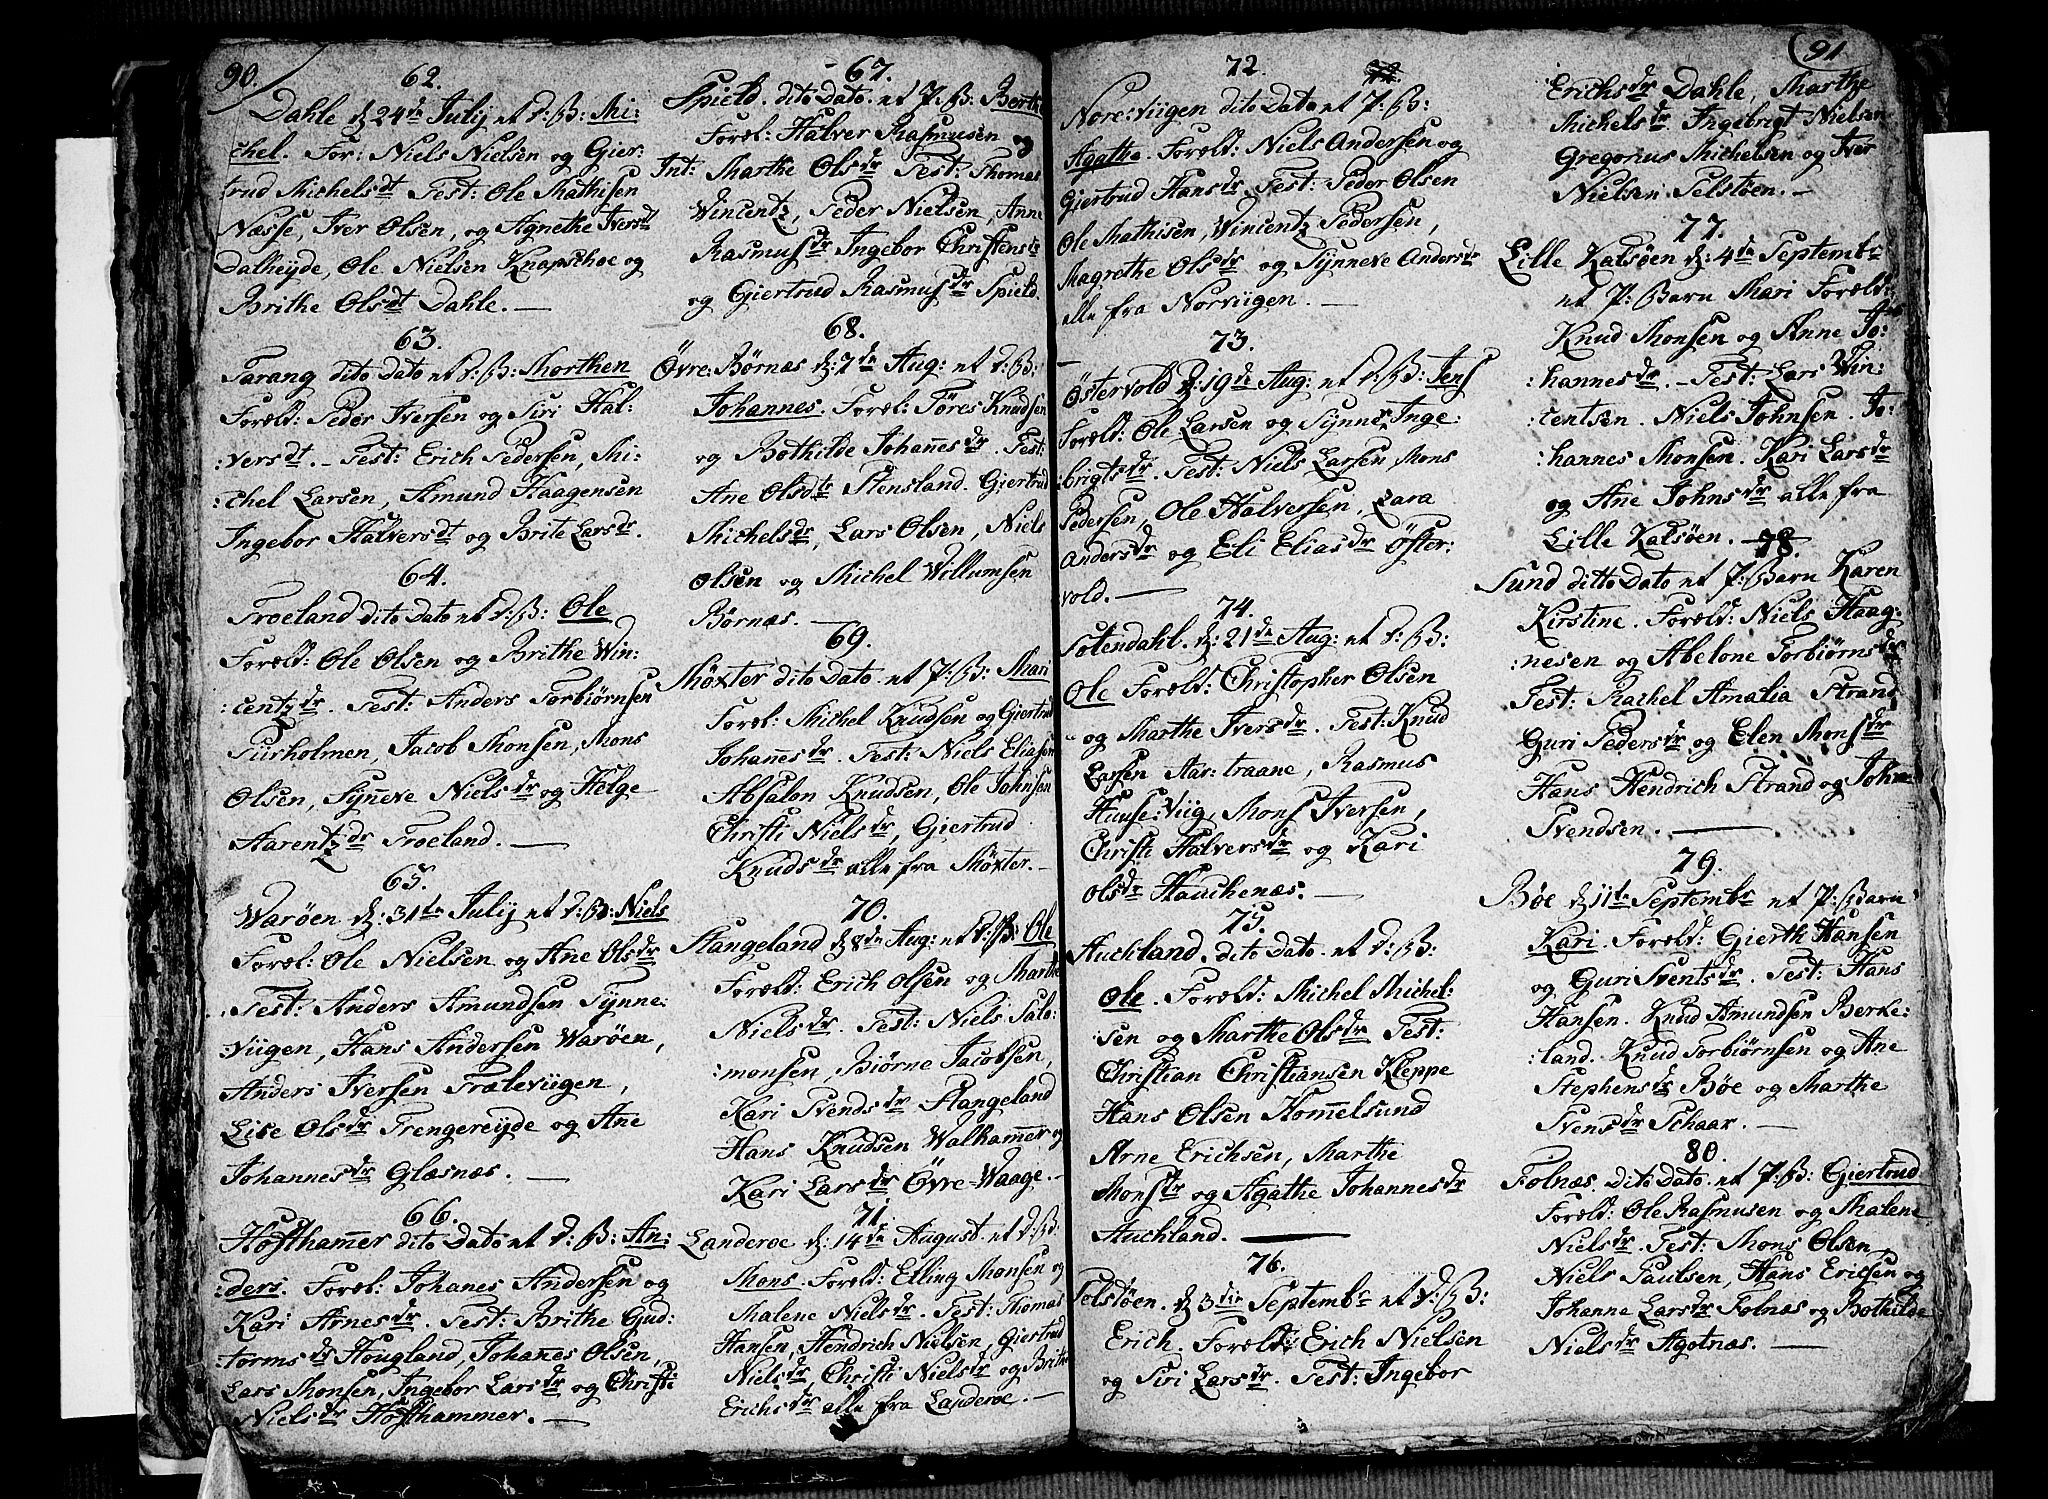 90.
62.
Dahle d. 24de Julij et P: B: Mi:
chel. For: Niels Nielsen og Gier:
trud Michelsdt Test: Ole Mathisen
Næsse, Iver Olsen, og Agnethe Iversdt
Dalheyde, Ole Nielsen Knapschoe og
Brithe Olsdt Dahle. —
63.
Farang dito Dato et P: B: Morthen
Foræld: Peder Iversen og Siri Hal:
:versdt. – Test: Erich Pedersen, Mi:
:chel Larsen, Amund Haagensen
Ingebor Halversdt og Brite Larsdr.
64.
Troeland dito Dato et P: B: Ole
Foræld: Ole Olsen og Brithe Win:
:centzdr. Test: Anders Torbiørnsen
Purholmen, Jacob Monsen, Mons
Olsen, Synneve Nielsdr og Helge
Aarentzdr Troeland. —
65.
Warøen d. 31te Julij et P: B: Niels
Foræl: Ole Nielsen og Ane Olsdr
Test: Anders Amundsen Synne:
:viigen, Hans Andersen Warøen,
Anders Iversen Træleviigen,
Lise Olsdr Trengereyde og Ane
Johannesdr Glæsnæs. —
66.
Hofthammer dito Dato et P: B: An:
:ders. Foræl: Johanes Andersen og
Kari Arnesdr. Test: Brithe Gud:
:tormsdr Hougland, Johanes Olsen,
Lars Monsen, Ingebor Larsdr og Christi
Nielsdr Hofthammer. —
67.
Spield. dito Dato. et P: B: Berthe
Foræl: Halver Rasmusen
Int: Marthe Olsdr Test: Thomas
Wincentz, Peder Nielsen, Anne
Rasmusdr Ingebor Christensdr
og Giertrud Rasmusdr Spield.
68.
Övre: Børnæs d: 7de Aug: et P: B:
Johannes. Foræl: Føres Knudsen
og Bothilde Johanesdr. Test:
Ane Olsdtr Stensland. Giertrud
Michelsdr, Lars Olsen, Niels
Olsen og Michel Willumsen
Børnæs. —
69.
Møxter dito Dato. et P: B: Mari
Foræl: Michel Knudsen og Giertrud
Johanesdr. Test: Niels Eliasen
Absalon Knudsen, Ole Johnsen
Christi Nielsdr, Giertrud
Knudsdr alle fra Møxter. –
70.
Stangeland d 8de Aug: et P: B: Ole
Foræld: Erich Olsen og Marthe
Nielsdr. Test: Niels Salo:
:monsen Biørne Jacobsen,
Kari Svendsdr Stangeland
Hans Knudsen Walhamer og
Kari Larsdr Övre-Waage. –
71.
Landerøe d: 14de August et P: B:
Mons. Foræld: Elling Monsen og
Malene Nielsdr. Test: Thomas
Hansen, Hendrich Nielsen, Giertrud
Nielsdr, Christi Nielsdr og Brithe
Erichsdr alle fra Landerøe. –
91
72.
Nore: viigen dito Dato et P: B:
Agathe. Foræld: Niels Andersen og
Giertrud Hansdr. Test: Peder Olsen
Ole Mathisen, Wincentz Pedersen,
Magrethe Olsdr og Synneve Andersdr
alle fra Norviigen. —
73.
Østervold d: 19de Aug: et P: B: Jens
Foræld: Ole Larsen og Synne, Inge:
:brigtsdr. Test: Niels Larsen Mons
Pedersen, Ole Halversen, Lara
Andersdr og Eli Eliasdr Øster:
vold. —
74.
Solendahl. d: 21de Aug: et P: B:
Ole Foræld: Christopher Olsen
og Marthe Iversdr. Test: Knud
Larsen Aar: traane, Rasmus
Huuse: Viig, Mons Iversen,
Christi Halversdr og Kari
Olsdr Hauchenæs. —
75.
Auchland. dito Dato. et P: B:
Ole. Foræld: Michel Michel:
:sen og Marthe Olsdr Test:
Christian Christiansen Kleppe
Hans Olsen Hommelsund
Arne Erichsen, Marthe
Monsdr og Agathe Johannesdr
Auchland. —
76.
Selstøen. d 3die Septembr et P: B:
Erich. Foræld: Erich Nielsen
og Siri Larsdr. Test: Ingebor
Erichsdr Dahle, Marthe
Michelsdr. Ingebrigt Nielsen
Gregorius Michelsen og Iver
Nielsen Selstøen. –
77.
Lille Kalsøen d: 4de Septembr
et P: Barn Mari Foreld:
Knud Monsen og Anne Jo:
:hannesdr. – Test: Lars Win:
:centsen. Niels Johnsen. Jo:
:hannes Monsen. Kari Larsdr
og Ane Johnsdr alle fra
Lille Kalsøen. —
78.
Sund ditto Dato et P: Barn Karen
Kirstine. Foræld: Niels Haag:
:nesen og Abelone Torbiørnsdr
Test: Rachel Amalia Strand
Guri Pedersdr og Elen Monsdr
Hans Hendrich Strand og Johan
Svendsen. —
79.
Bøe d 11te Septembr et P: Barn
Kari. Foræld: Gierth Hansen
og Guri Sventsdr. Test: Hans
Hansen. Knud Amundsen Berke:
:land. Knud Torbiørnsen og Ane
Stephensdr Bøe og Marthe
Svensdr Schaar. —
80.
Folnæs. dito Dato et P: B: Giertrud
Foræld: Ole Rasmusen og Malene
Nielsdr. Test: Mons Olsen,
Niels Paulsen, Hans Ericsen og
Johanne Larsdr Folnæs og Bothilde
Nielsdr Agotnæs. —